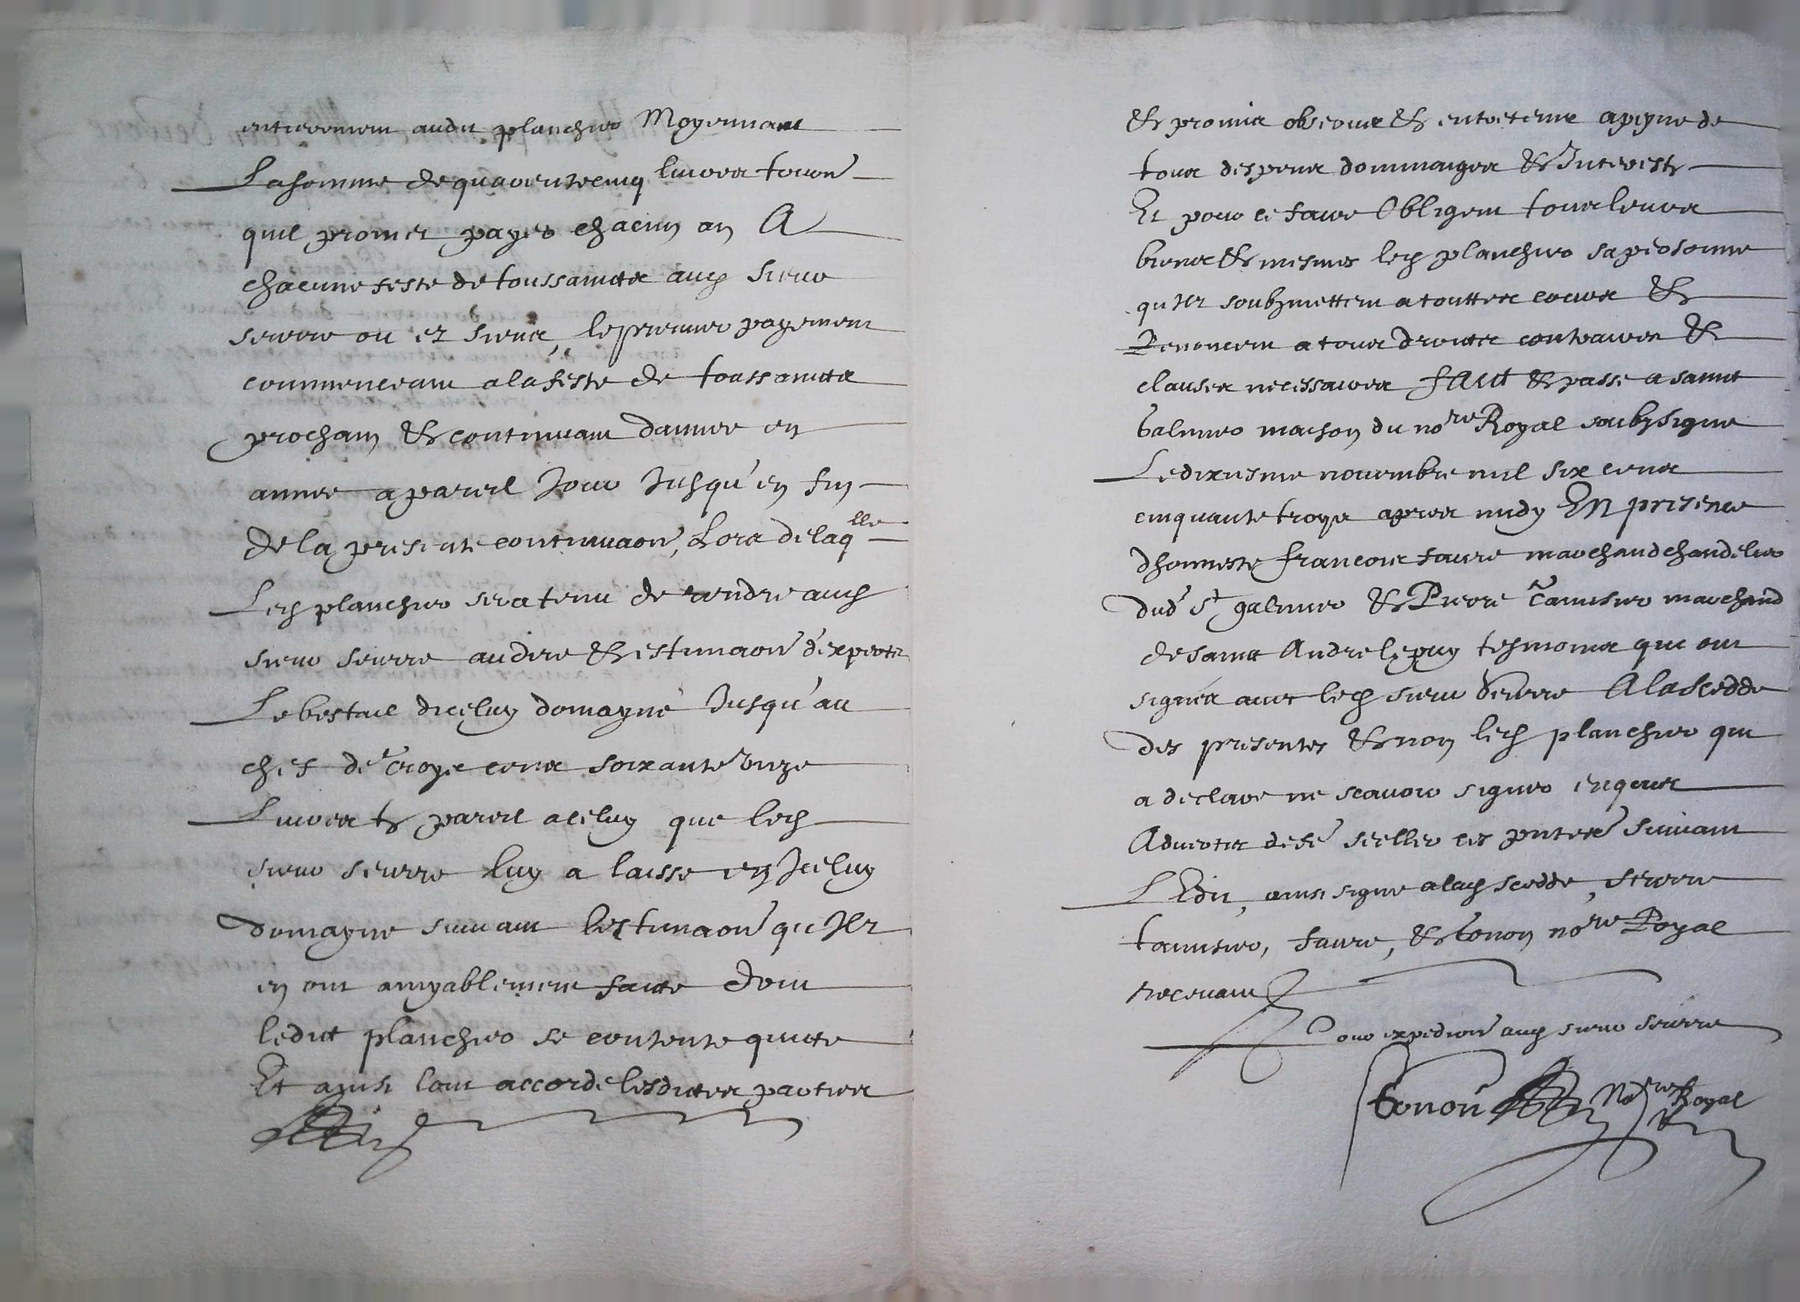 entierement audit planchier Moyennant
La somme de quarente cinq livres tourn
quil promet payer chacun an A
chacune feste de toussainctz aud sieur
serurre ou ez siens, le premier payement
commenceant a la feste de toussainctz
prochain & continuant dannee en
annee a pareil Jour Jusqu'en fin
de la presente continuaon, Lors de laqlle
Led planchier sera tenu de rendre aud
sieur seurre au dire & estimaon d'expertz
Le bestail diceluy domayne Jusqu'au
chef de troys cens soixante unze
Livres & pareil a celuy que led
sieur seurre luy a laisse en Iceluy
domayne suivant lestimaon qu'Ilz
en ont amyablement faicte dont
ledict planchier se contente quicte
Et ainsi lont accorde lesdictes parties
& promis observer & entretenir a peyne de
tous despens dommaiges & Interestz
Et pour ce faire Obligent tous leurs
biens & mesmes led planchier sa personne
qu'Ilz soubzmettent a touttes cours &
Renoncent a tous droictz contraires &
clauses necessaires faict & passe a sainct
Galmier maison du nore Royal soubzsigne
Le dixiesme novembre mil six cens
cinquante troys apres midy En presence
dhonneste francois faure marchand chandelier
dud St galmier & Pierre tamisier marchand
de sainct Andre le puy tesmoins qui ont
signez avec led sieur seurre A la scedde
des presentes & non led planchier qui
a declare ne scavoir signer enquis
Advertis de fe seeller ces pntes suivant
LEdit, ainsi signe a lad scedde, seurre
tamisier, faure, & tonon nore Royal
recevant
Pour expedion aud sieur seurre
tonon nore Royal